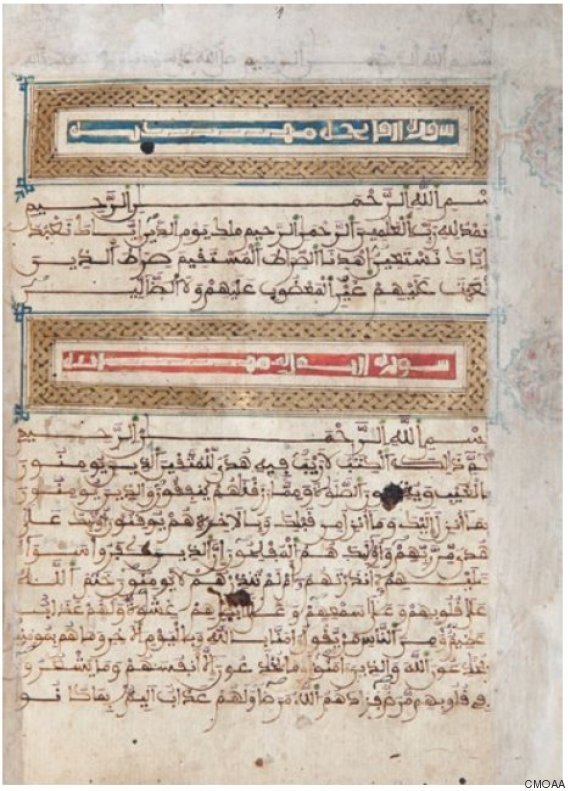 بسم الله الرحمن الرحيم
سورة
بسم الله الرحمن الرحيم
الحمد لله رب العلمين الرحمن الرحيم ملك يوم الدين اياك نعبد
واياك نستعين اهدنا الصراط المستقيم صراط الذين
انعمت عليهم غير المغضوب عليهم ولا الضالين
سورة
بسم الله الرحمن الرحيم
الم ذلك الكتب لا ريب فيه هدى للمتقين الذين يومنون
بالغيب ويقيمون الصلوة ومما رزقنهم ينفقون والذين يومنون
بما انزل اليك وما انزل من قبلك وبالاخرة هم يوقنون اوليك على
هدى من ربهم واوليك هم المفلحون ان الذين كفروا سوا
عليهم اانذرتهم ام لم تنذرهم لا يومنون ختم الله
على قلوبهم وعلى سمعهم وعلى ابصرهم غشوة ولهم عذاب
عظيم ومن الناس من يقول امنا بالله وباليوم الاخر وما هم بمومنين
يخدعون الله والذين امنوا وما يخدعون الا انفسهم وما يشعرون
في قلوبهم مرض فزادهم الله مرضا ولهم عذاب اليم بما كانوا
CMOAA